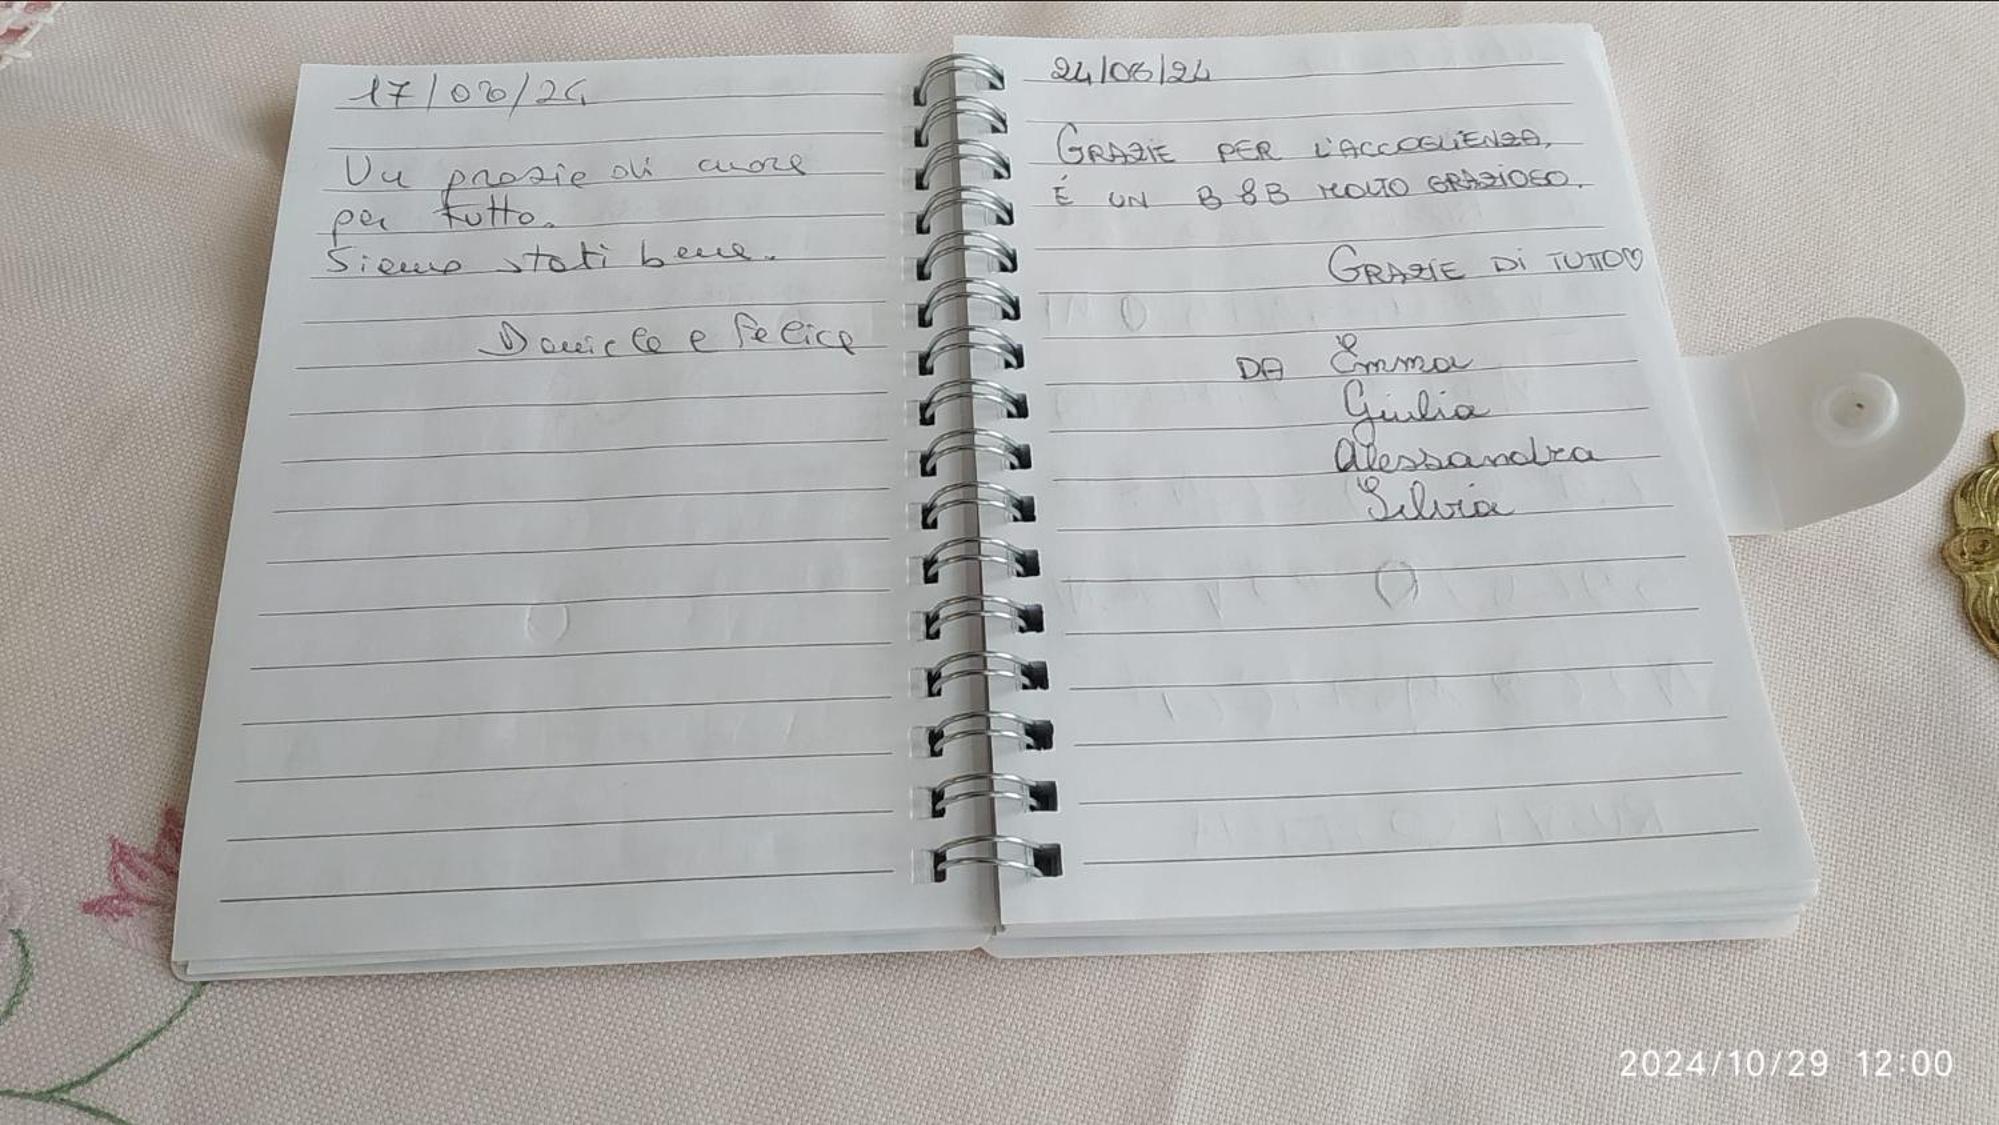 17/08/24
Un grazie di cuore
per tutto.
Siamo stati bene.
Daniela e Felice
24/08/24
GRAZIE PER L'ACCOGLIENZA,
É UN B&B MOLTO GRAZIOSO.
GRAZIE Di TUTTO♡
DA Emma
Giulia
Alessandra
Silvia
2024/10/29 12:00